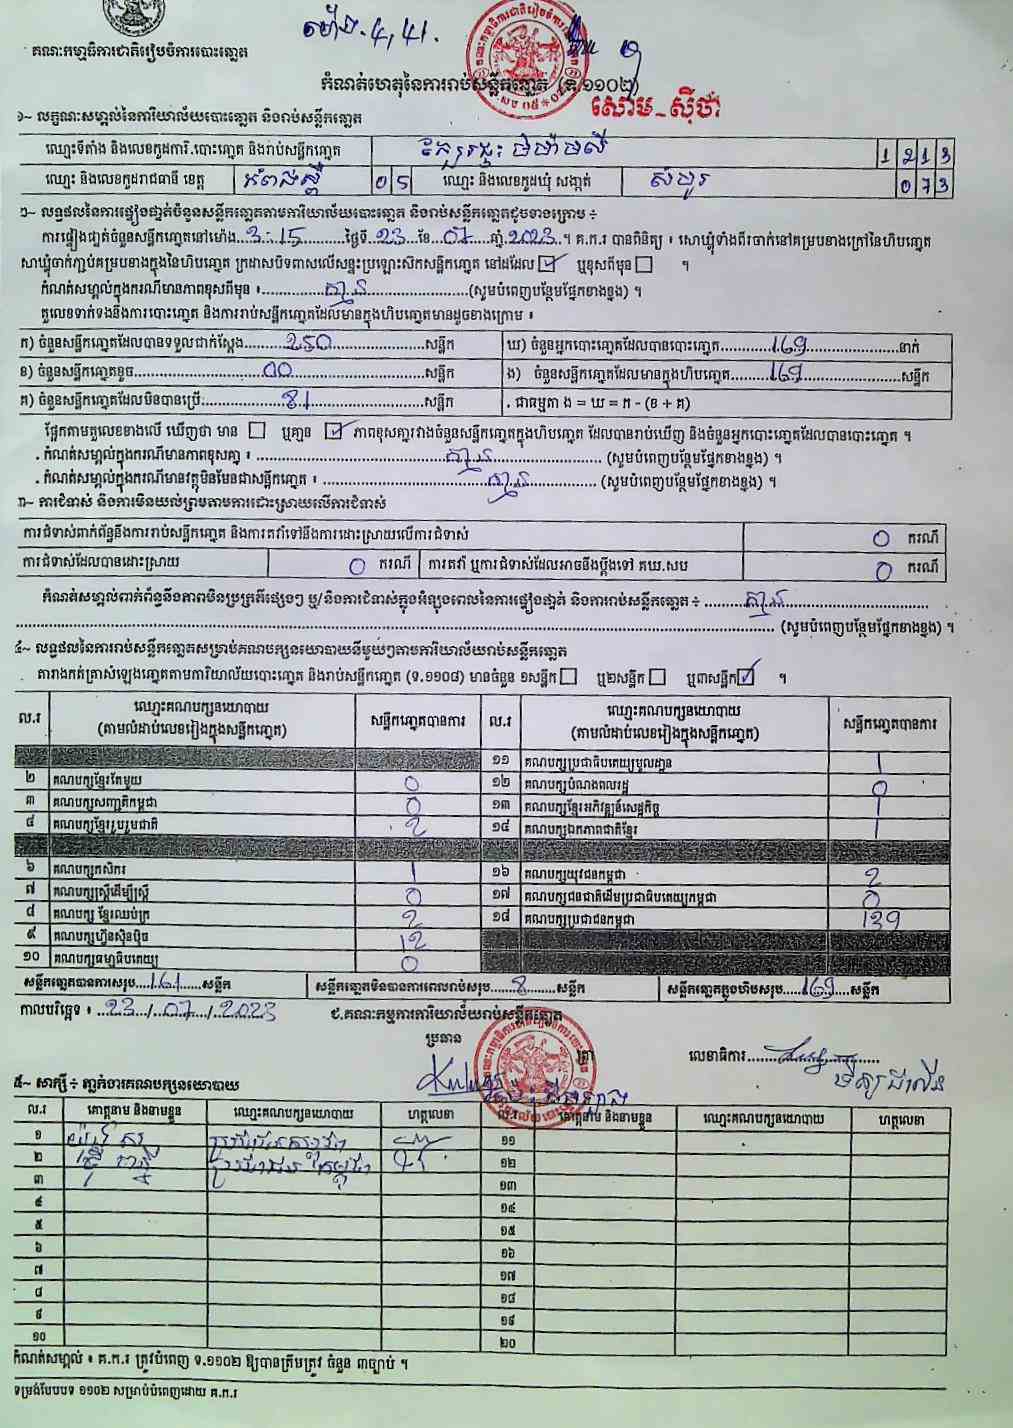 ម៉ោង 4,41.
គណៈកម្មាធិការជាតិរៀបចំការបោះឆ្នោត
កំណត់ហេតុនៃការរាប់សន្លឹកឆ្នោត (ទ.១១០២)
សោម-ស៊ីថា
១~ លក្ខណៈសម្គាល់នៃការិយាល័យបោះឆ្នោត និងរាប់សន្លឹកឆ្នោត
ឈ្មោះទីតាំង និងលេខកូដការិ.បោះឆ្នោត និងរាប់សន្លឹកឆ្នោត 1 2 1 3
ឈ្មោះ និងលេខកូដរាជធានី ខេត្ត កំពង់ស្ពឺ 0 5 ឈ្មោះ និងលេខកូដឃុំ សង្កាត់ សំបូរ 0 7 3
២~ លទ្ធផលនៃការផ្ទៀងផ្ទាត់ចំនួនសន្លឹកឆ្នោតតាមការិយាល័យបោះឆ្នោត និងរាប់សន្លឹកឆ្នោតដូចខាងក្រោម ៖
ការផ្ទៀងផ្ទាត់ចំនួនសន្លឹកឆ្នោតនៅម៉ោង 3:15 ថ្ងៃទី 23 ខែ 07 ឆ្នាំ 2023 ។ គ.ក.រ បានពិនិត្យ ៖ សោឃ្លុំទាំងពីរចាក់នៅគម្របខាងក្រៅនៃហិបឆ្នោត
សាឃ្លុំចាក់ភ្ជាប់គម្របខាងក្នុងនៃហិបឆ្នោត ក្រដាសបិទពាសលើសន្ទះប្រឡោះស៊កសន្លឹកឆ្នោត នៅដដែល ☑ ឬខុសពីមុន ☐ ។
កំណត់សម្គាល់ក្នុងករណីមានភាពខុសពីមុន ៖ គ្មាន (សូមបំពេញបន្ថែមផ្នែកខាងខ្នង) ។
តួលេខទាក់ទងនឹងការបោះឆ្នោត និងការរាប់សន្លឹកឆ្នោតដែលមានក្នុងហិបឆ្នោតមានដូចខាងក្រោម ៖
ក) ចំនួនសន្លឹកឆ្នោតដែលបានទទួលជាក់ស្តែង 250 សន្លឹក ឃ) ចំនួនអ្នកបោះឆ្នោតដែលបានបោះឆ្នោត 169 នាក់
ខ) ចំនួនសន្លឹកឆ្នោតខូច 00 សន្លឹក ង) ចំនួនសន្លឹកឆ្នោតដែលមានក្នុងហិបឆ្នោត 169 សន្លឹក
គ) ចំនួនសន្លឹកឆ្នោតដែលមិនបានប្រើ 81 សន្លឹក . ជាធម្មតា ង = ឃ = ក - (ខ + គ)
ផ្អែកតាមតួលេខខាងលើ ឃើញថា មាន ☐ ឬគ្មាន ☑ ភាពខុសគ្នារវាងចំនួនសន្លឹកឆ្នោតក្នុងហិបឆ្នោត ដែលបានរាប់ឃើញ និងចំនួនអ្នកបោះឆ្នោតដែលបានបោះឆ្នោត ។
. កំណត់សម្គាល់ក្នុងករណីមានភាពខុសគ្នា ៖ គ្មាន (សូមបំពេញបន្ថែមផ្នែកខាងខ្នង) ។
. កំណត់សម្គាល់ក្នុងករណីមានវត្ថុមិនមែនជាសន្លឹកឆ្នោត ៖ គ្មាន (សូមបំពេញបន្ថែមផ្នែកខាងខ្នង) ។
៣~ ការជំទាស់ និងការមិនយល់ព្រមតាមការដោះស្រាយលើការជំទាស់
ការជំទាស់ពាក់ព័ន្ធនឹងការរាប់សន្លឹកឆ្នោត និងការតវ៉ាទៅនឹងការដោះស្រាយលើការជំទាស់ 0 ករណី
ការជំទាស់ដែលបានដោះស្រាយ 0 ករណី ការតវ៉ា ឬការជំទាស់ដែលអាចនឹងប្តឹងទៅ គឃ.សប 0 ករណី
កំណត់សម្គាល់ពាក់ព័ន្ធនឹងភាពមិនប្រក្រតីផ្សេងៗ ឬ/និងការជំទាស់ក្នុងអំឡុងពេលនៃការផ្ទៀងផ្ទាត់ និងការរាប់សន្លឹកឆ្នោត ៖ គ្មាន
(សូមបំពេញបន្ថែមផ្នែកខាងខ្នង) ។
៤~ លទ្ធផលនៃការរាប់សន្លឹកឆ្នោតសម្រាប់គណបក្សនយោបាយនីមួយៗតាមការិយាល័យរាប់សន្លឹកឆ្នោត
តារាងកត់ត្រាសំឡេងឆ្នោតតាមការិយាល័យបោះឆ្នោត និងរាប់សន្លឹកឆ្នោត (ទ.១១០៨) មានចំនួន ១សន្លឹក ☐ ឬ២សន្លឹក ☐ ឬ៣សន្លឹក ☑ ។
ល.រ ឈ្មោះគណបក្សនយោបាយ (តាមលំដាប់លេខរៀងក្នុងសន្លឹកឆ្នោត) សន្លឹកឆ្នោតបានការ ល.រ ឈ្មោះគណបក្សនយោបាយ (តាមលំដាប់លេខរៀងក្នុងសន្លឹកឆ្នោត) សន្លឹកឆ្នោតបានការ
១១ គណបក្សប្រជាធិបតេយ្យមូលដ្ឋាន 1
២ គណបក្សខ្មែរតែមួយ 0 ១២ គណបក្សបំណងពលរដ្ឋ 0
៣ គណបក្សសញ្ជាតិកម្ពុជា 0 ១៣ គណបក្សខ្មែរអភិវឌ្ឍន៍សេដ្ឋកិច្ច 1
៤ គណបក្សខ្មែររួបរួមជាតិ 2 ១៤ គណបក្សឯកភាពជាតិខ្មែរ 1
៦ គណបក្សកសិករ 1 ១៦ គណបក្សយុវជនកម្ពុជា 2
៧ គណបក្សស្ត្រីដើម្បីស្ត្រី 0 ១៧ គណបក្សជនជាតិដើមប្រជាធិបតេយ្យកម្ពុជា 0
៨ គណបក្ស ខ្មែរឈប់ក្រ 2 ១៨ គណបក្សប្រជាជនកម្ពុជា 139
៩ គណបក្សហ្វ៊ុនស៊ិនប៉ិច 12
១០ គណបក្សធម្មាធិបតេយ្យ 0
សន្លឹកឆ្នោតបានការសរុប 161 សន្លឹក សន្លឹកឆ្នោតមិនបានការពេលរាប់សរុប 8 សន្លឹក សន្លឹកឆ្នោតក្នុងហិបសរុប 169 សន្លឹក
កាលបរិច្ឆេទ ៖ 23/07/2023 ជ.គណៈកម្មការការិយាល័យរាប់សន្លឹកឆ្នោត
ប្រធាន ត្រា លេខាធិការ
៥~ សាក្សី ៖ ភ្នាក់ងារគណបក្សនយោបាយ
ល.រ គោត្តនាម និងនាមខ្លួន ឈ្មោះគណបក្សនយោបាយ ហត្ថលេខា ល.រ គោត្តនាម និងនាមខ្លួន ឈ្មោះគណបក្សនយោបាយ ហត្ថលេខា
១ ប្រជាជនកម្ពុជា ១១
២ ប្រជាជន កម្ពុជា ១២
៣ ១៣
៤ ១៤
៥ ១៥
៦ ១៦
៧ ១៧
៨ ១៨
៩ ១៩
១០ ២០
កំណត់សម្គាល់ ៖ គ.ក.រ ត្រូវបំពេញ ទ.១១០២ ឱ្យបានត្រឹមត្រូវ ចំនួន ៣ច្បាប់ ។
ទម្រង់បែបបទ ១១០២ សម្រាប់បំពេញដោយ គ.ក.រ